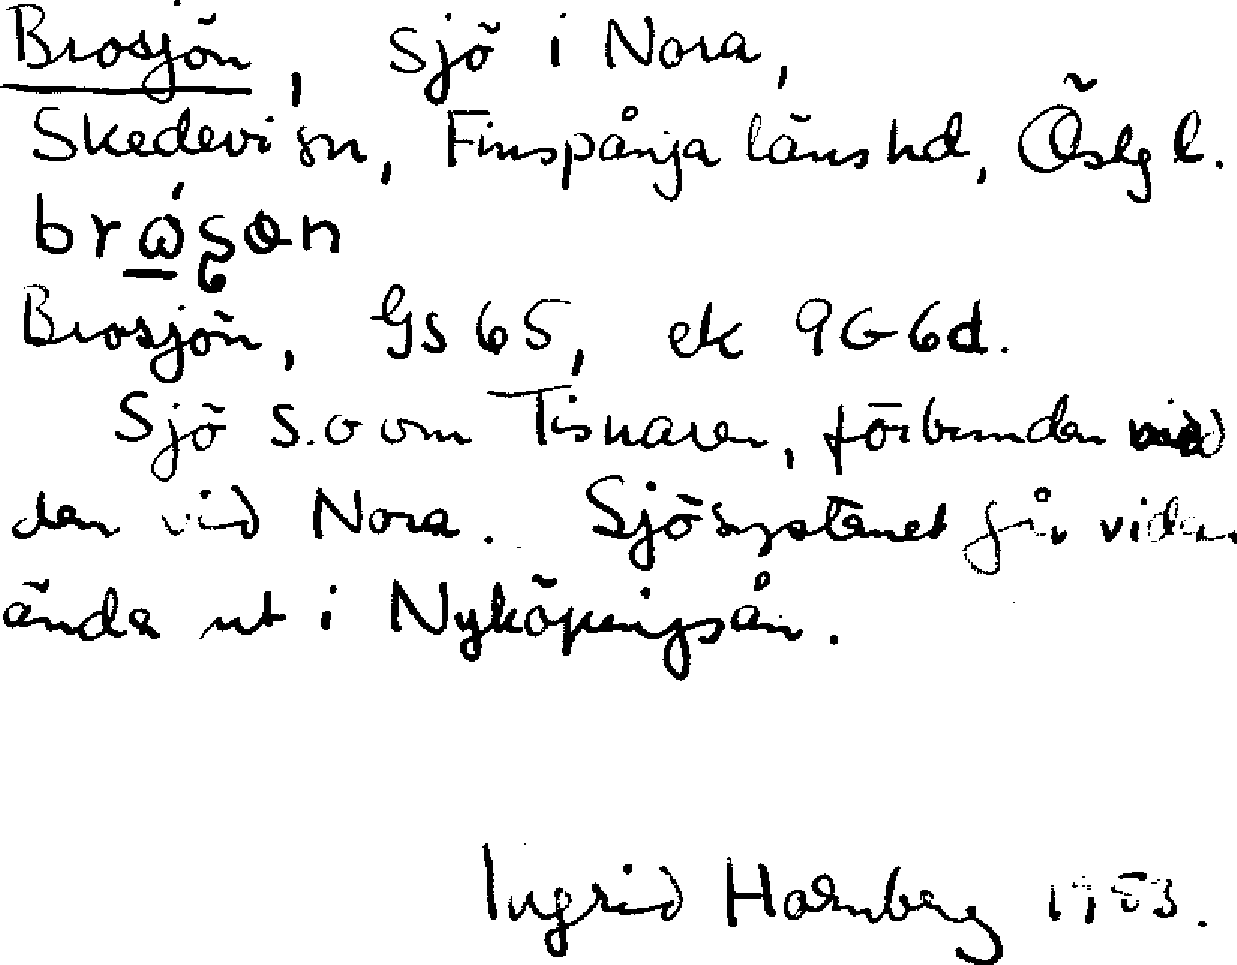 Brosjön, sjö i Nora,
Skedevi sn, Finspånga länshd, Östgl.
Brosjön, GS 65, ek 9G6d.
Sjö S.o om Tisnaren, förbunden med
den vid Nora. Sjösystemet går vidare
ända ut i Nyköpingsån.
Ingrid Holmberg 1983.